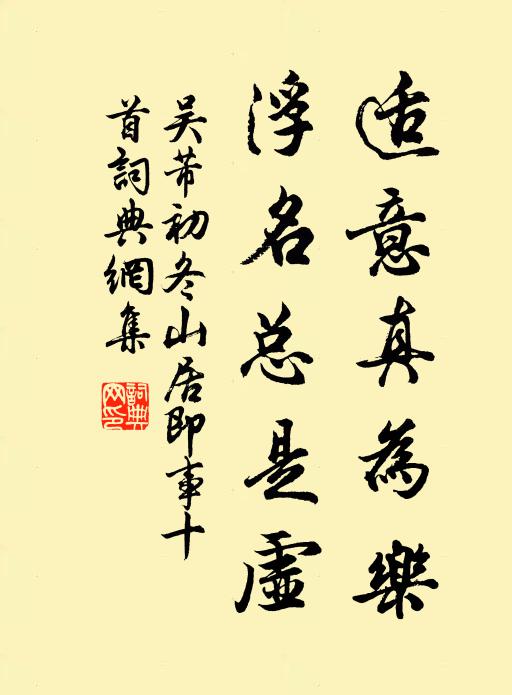 适意真為樂
浮名总是虛
吴芾初冬山居即事十
首詞典網集
詞典
网印